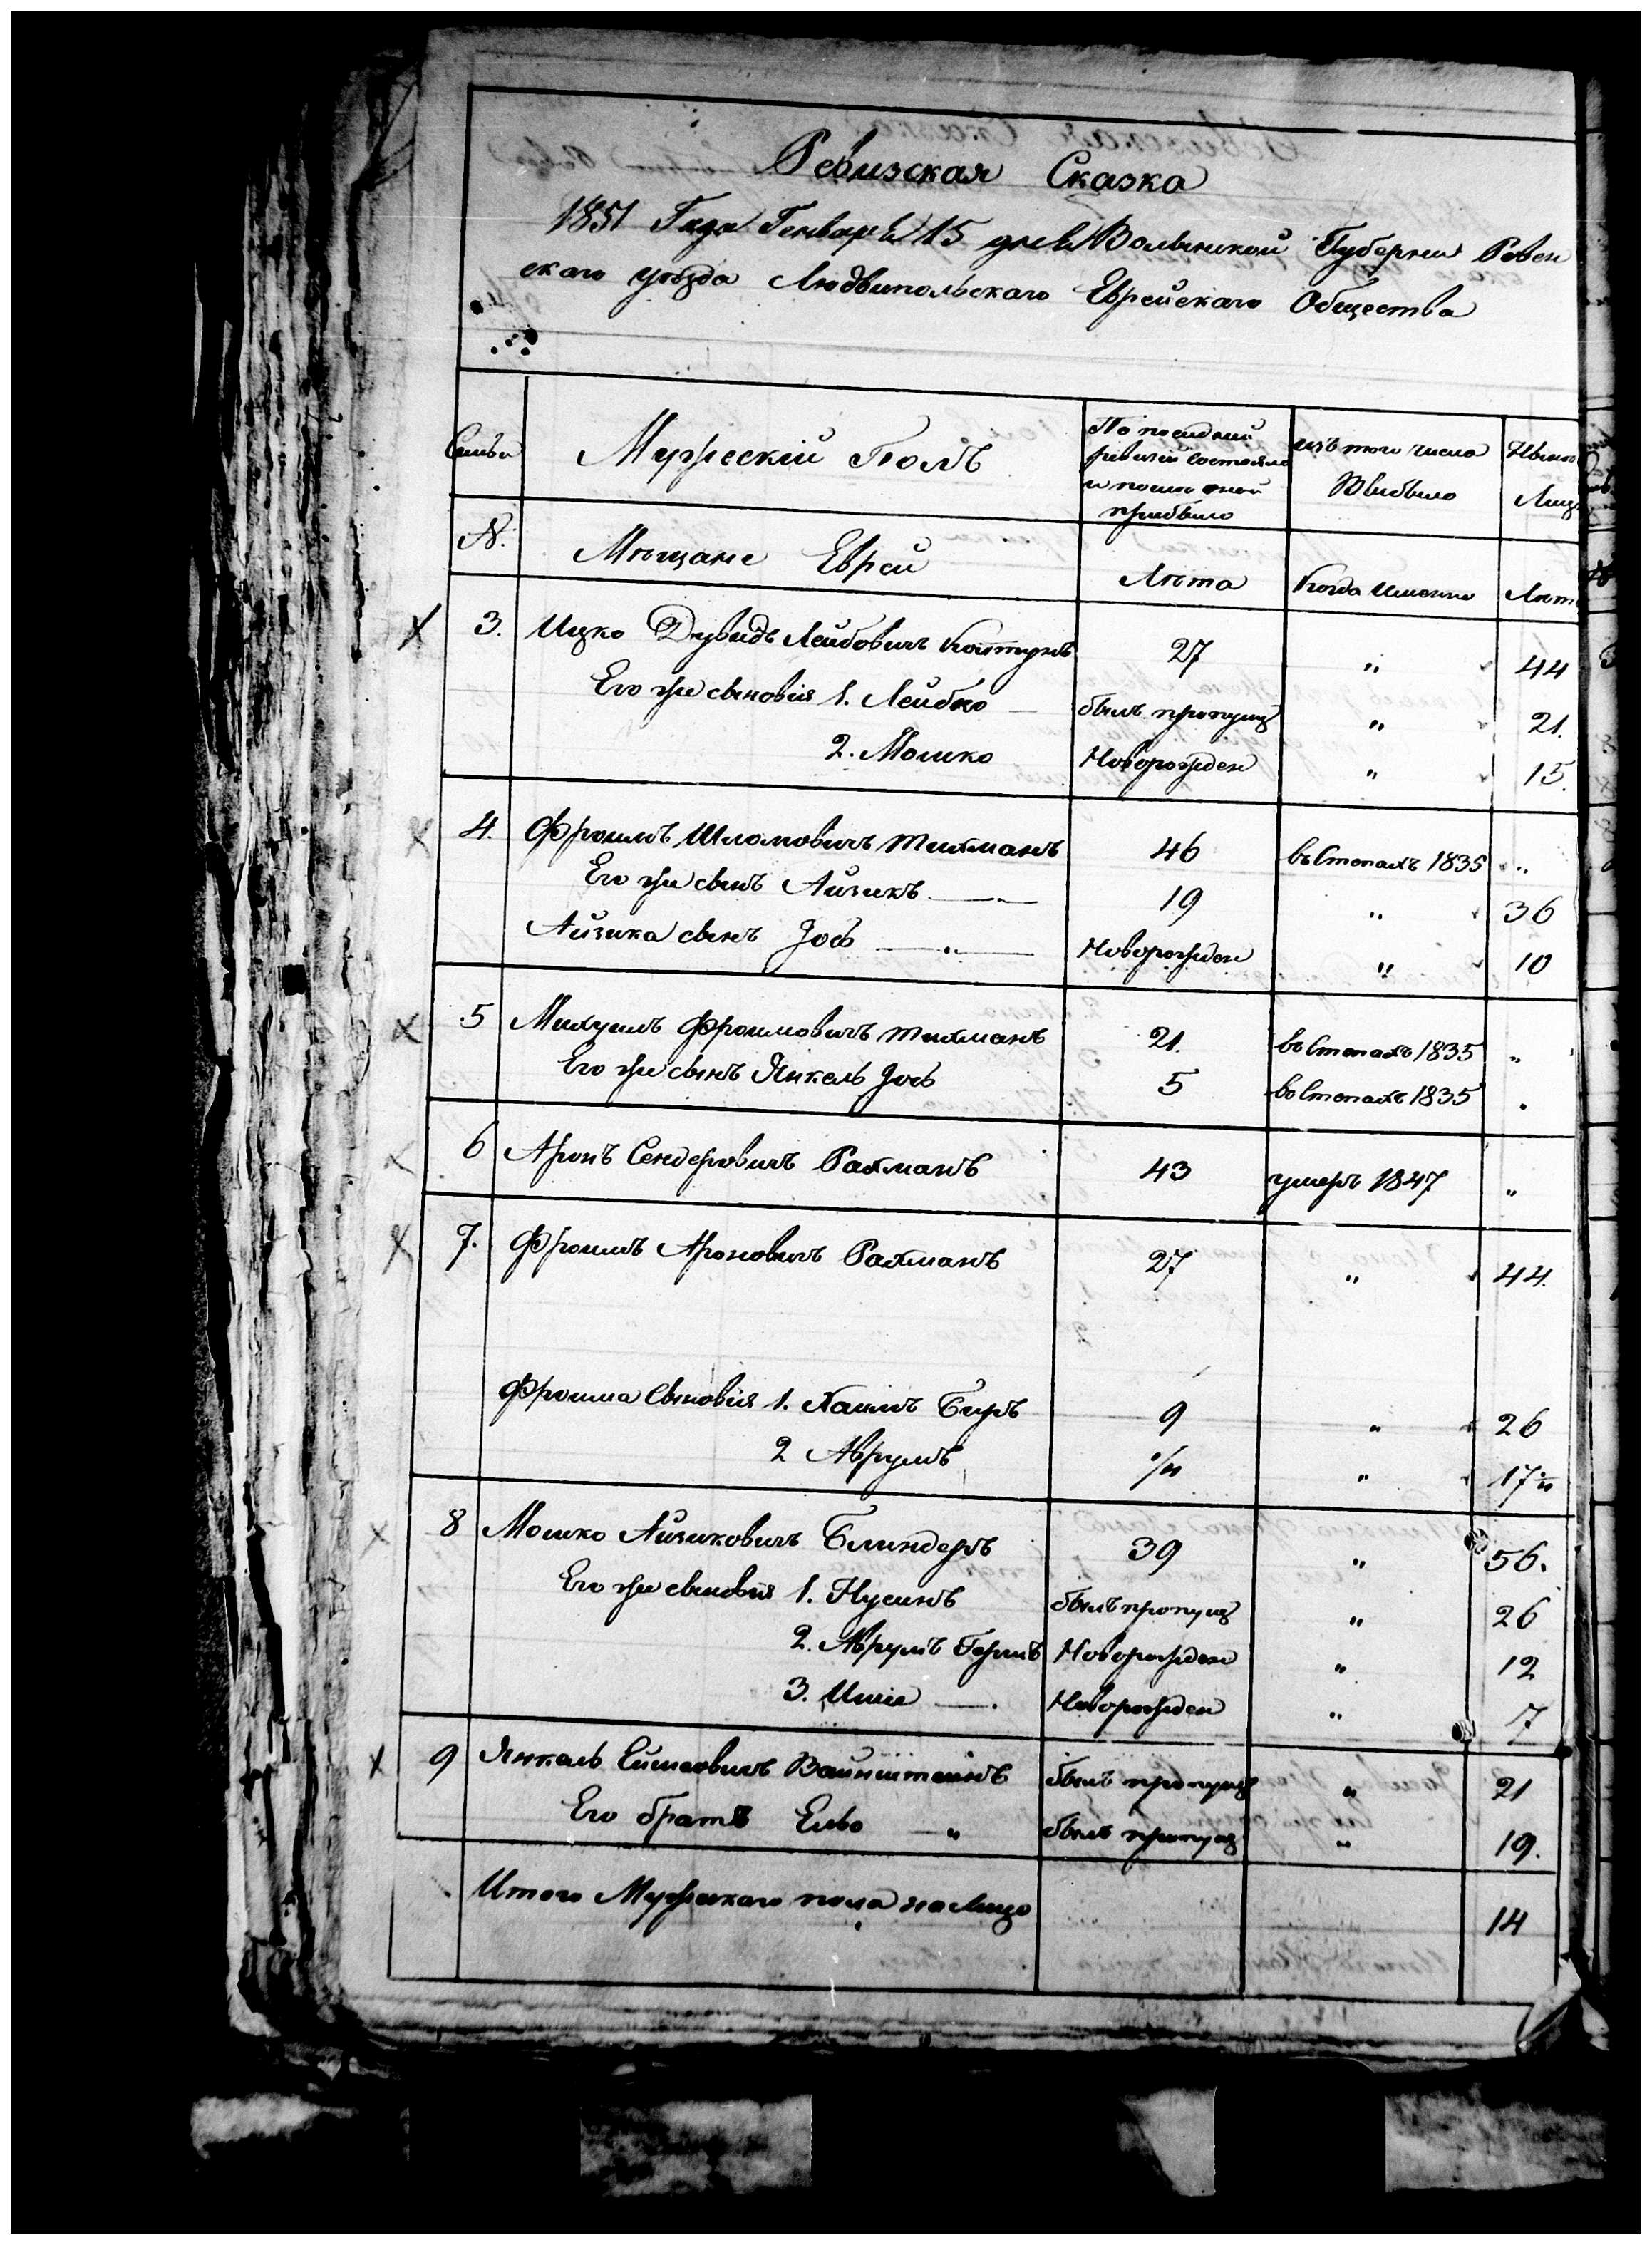 Ревизская Сказка
1851 Года Генваря 15 дня Волынской Губернии Ровен
скаго уѣзда Людвипольскаго Еврейскаго Общества
Семьи
Мужескій Полъ
По последней
ревизіи состояло
и после оной
прибыло
изъ того числа
Выбыло
Ныне
Лиц
N.
Мѣщане Евреи
Лѣта
Когда Именно
Лѣт
3. Ицко Дувидъ Лейбовичъ 27 " 44
Его же сыновія 1. Лейбко был пропущ " 21.
2. Мошко Новорожден " 15.
4. Фроимъ Шломовичъ Тихманъ 46 1835 "
Его же сынъ Айзикъ 19 " 36
Айзика сынъ Зось " Новорожден " 10
5 Михуель Фроимовичъ Тихманъ 21. 1835 "
Его же сынъ Янкель Зось 5 1835
6 Аронъ Сендеровичъ Рахманъ 43 умеръ 1847 "
7. Фроимъ Ароновичъ Рахманъ 27 " 44.
Фроима Сыновія 1. Хаимъ Беръ 9 " 26
2 Аврумъ " 17
8 Мошко Айзиковичъ Блиндеръ 39 " 56.
Его же сыновія 1. Нусинъ былъ пропущ " 26
2. Аврумъ Гершъ Новорожден " 12
3. Ишіе Новорожден " 7
9 Янкель Вайнштейнъ былъ пропущ " 21
Его братъ Ельо " былъ пропущ " 19.
Итого Мужескаго пола на Лицо 14